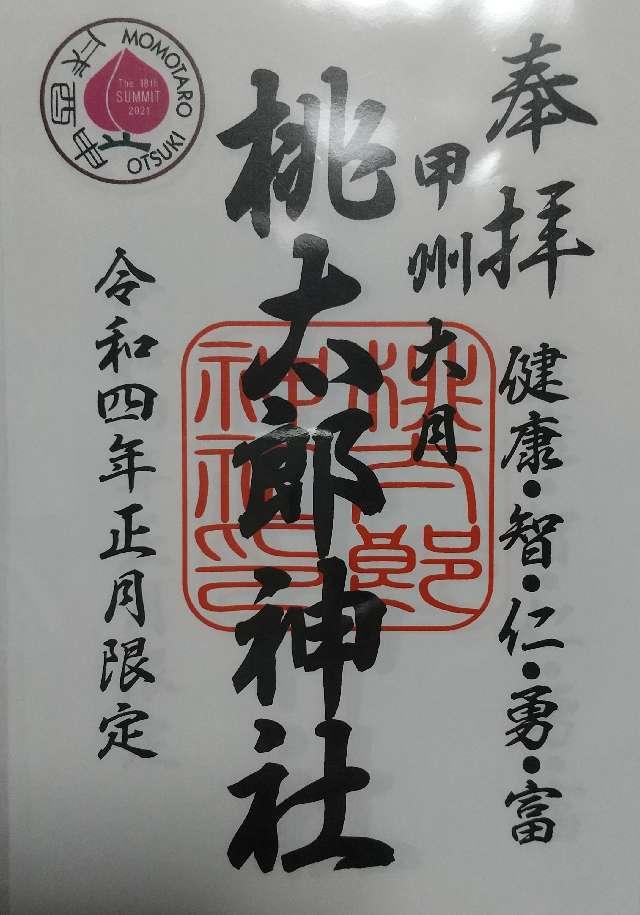 奉拝
健康・智・仁・勇・富
甲州
大月
桃太郎神社
桃太郎
神社印
令和四年正月限定
MOMOTARO
OTSUKI
The 18th
SUMMIT
2021